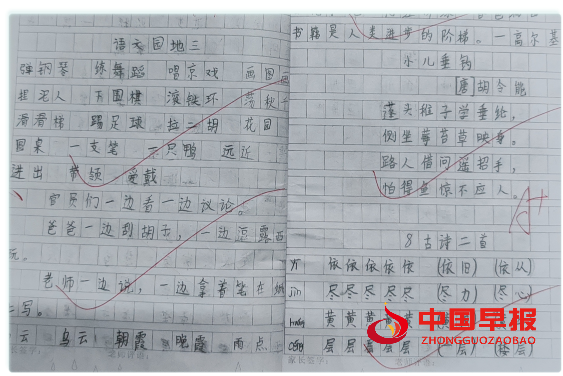 语文园地三
弹钢琴 练舞蹈 唱京戏 画国画
捏泥人 下围棋 滚铁环 荡秋千
滑滑梯 踢足球 拉二胡 花园
圆桌 一支笔 一只鸭 远近
进出 戴领 爱戴
官员们一边看一边议论。
爸爸一边刮胡子，一边逗露西
玩。
老师一边说，一边拿着笔在
写。
云 乌云 朝霞 晚霞 雨点
家长签字： 老师评语：
书籍是人类进步的阶梯。—高尔基
小儿垂钓
唐胡令能
蓬头稚子学垂纶，
侧坐莓苔草映身。
路人借问遥招手，
怕得鱼惊不应人。
A+
8 古诗二首
yī 依依依依依 （依旧）（依从）
jìn 尽尽尽尽尽 （尽力）（尽心）
huáng 黄黄黄黄
céng 层层层层层 （层）（楼层）
家长签字：
中国早报
ZHONGGUOZAOBAO